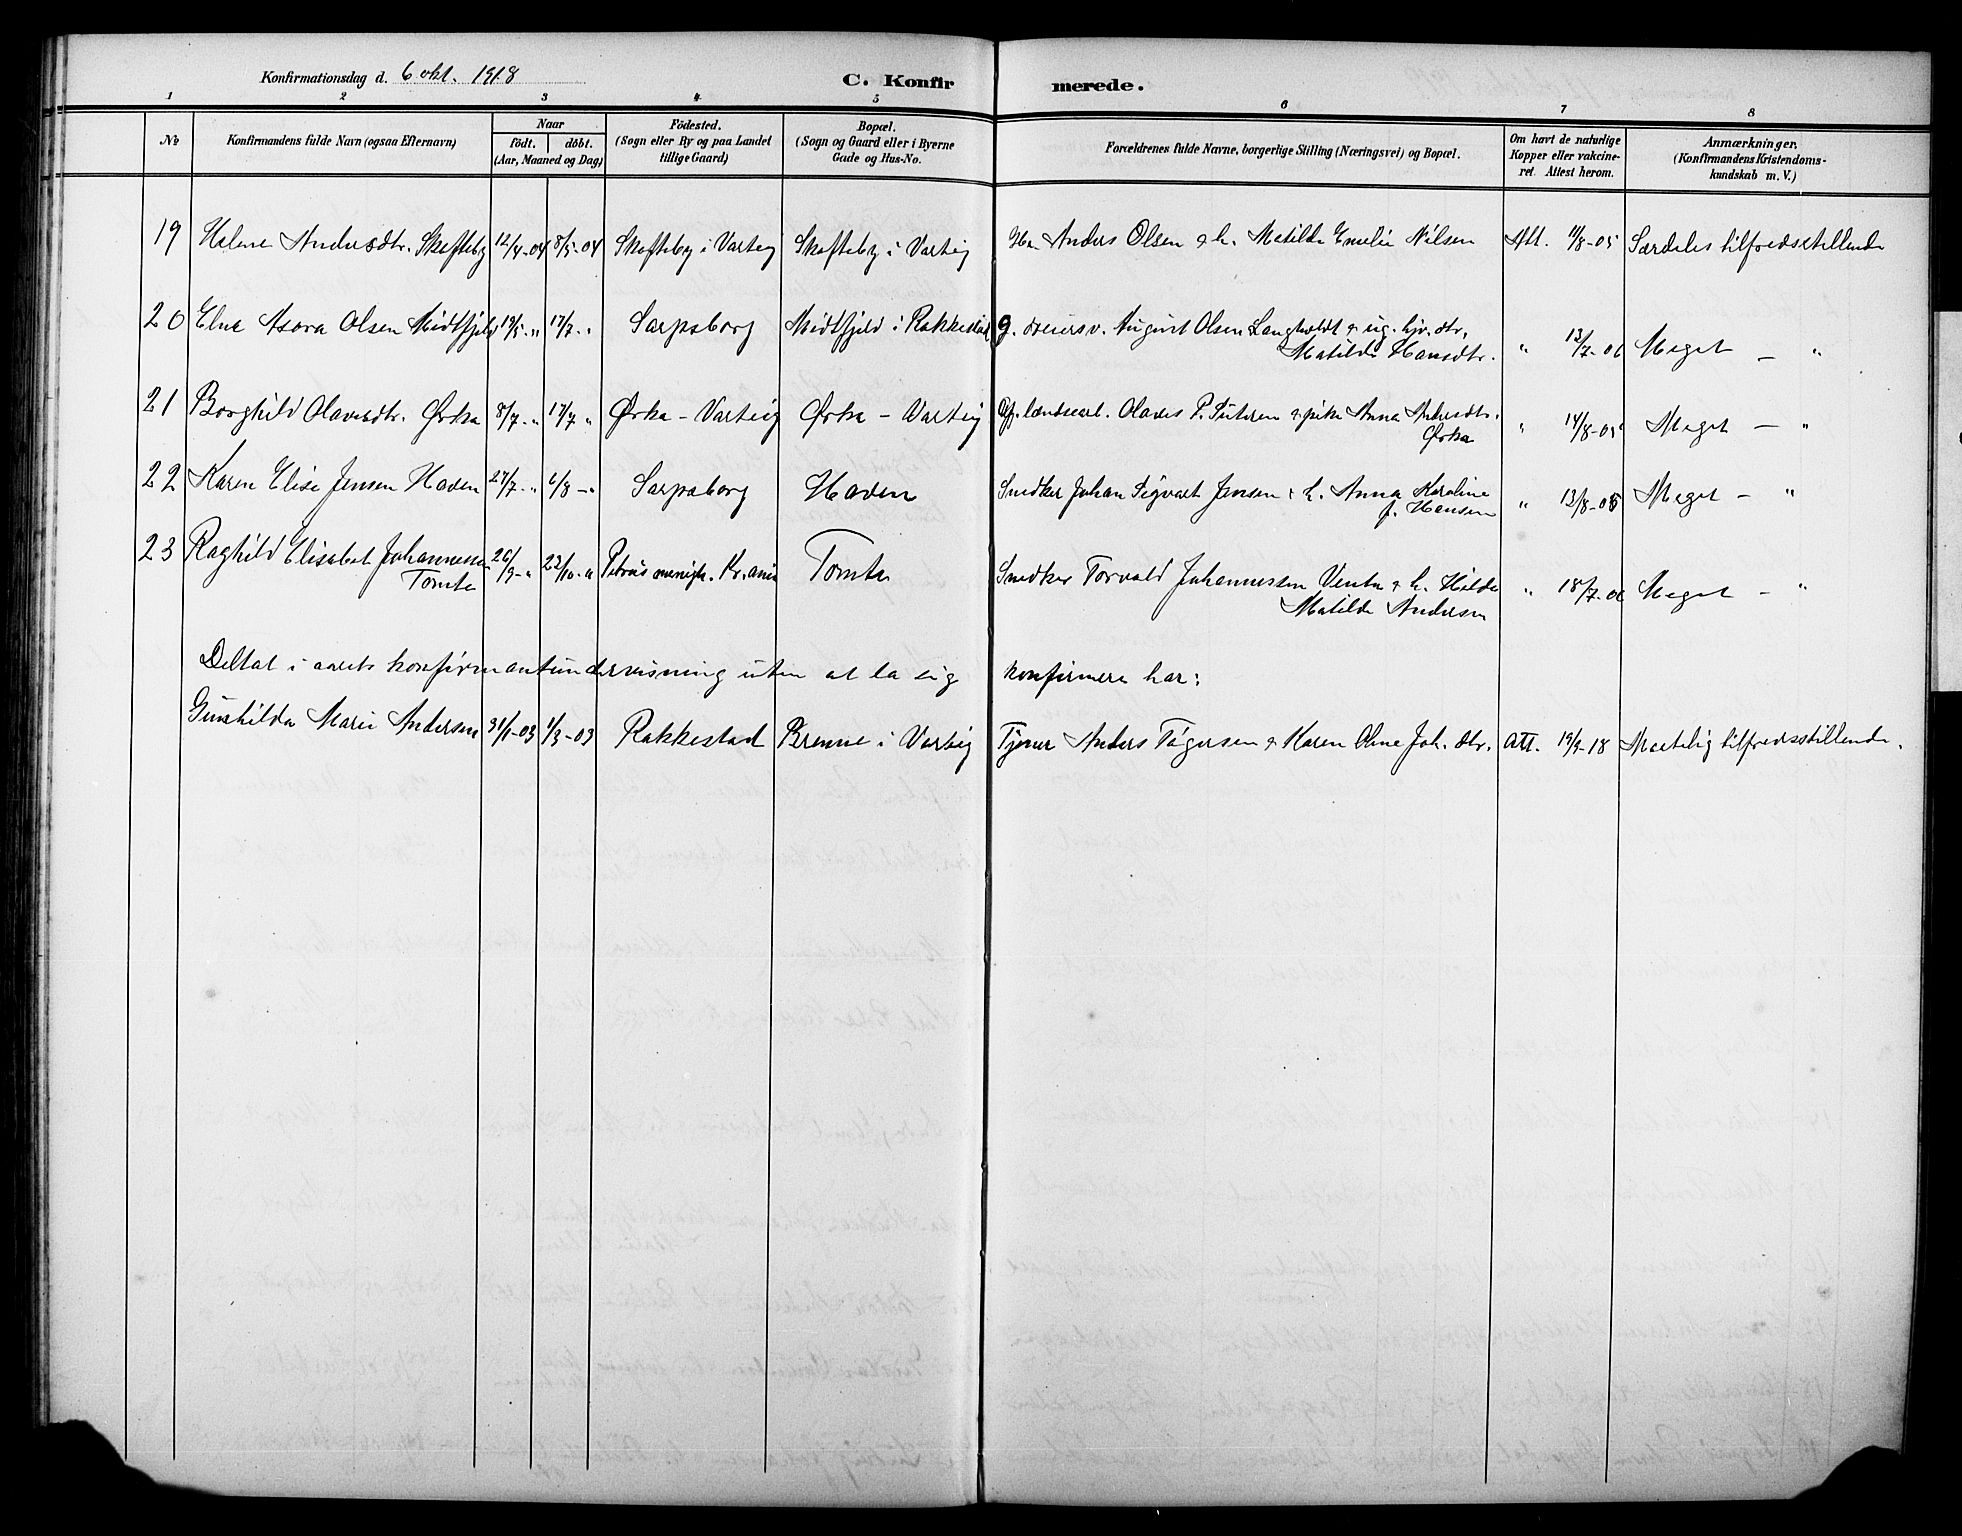 Konfirmationsdag d. 6 okt. 1918
C. Konfirmerede.
1 2 3 4 5 6 7 8
No
Konfirmandens fulde Navn (ogsaa Efternavn)
Naar
födt. döbt.
(Aar, Maaned og Dag)
Födested.
(Sogn eller By og paa Landet
tillige Gaard)
Bopæl.
(Sogn og Gaard eller i Byerne
Gade og Hus-No.
Forældrenes fulde Navne, borgerlige Stilling (Næringsvei) og Bopæl.
Om havt de naturlige
Kopper eller vakcine-
ret. Attest herom.
Anmærkninger.
(Konfirmandens Kristendoms-
kundskab m. V.)
19 Helene Andersdtr. Skofteby 12/4-04 8/5-04 Skofteby i Varteig Skofteby i Varteig Anders Olsen & h. Matilde Emelie Nilsen Att. 11/8-05 Særdeles tilfredsstillende
20 Elna Asora Olsen Midtfjeld 19/5-" 17/7-" Sarpsborg Midtfjeld i Rakkestad g. August Olsen Langholdt & ug.
Matilde Hansdtr. " 13/7-06 Meget — "
21 Borghild Olavesdtr. Ørka 8/7-" 17/7 " Ørka - Varteig Ørka - Varteig Olaves P. & pike Anna
Ørka " 14/8-05 Meget — "
22 Karen Elise Jensen Haven 27/7-" 6/8-" Sarpsborg Haven Snedker Johan Sigvart Jensen & h. Anna Karoline
f. Hansen " 13/8-05 Meget — "
23 Raghild Elisabet Johannessen
Tomta 26/9-" 23/10-" Petrus menigh. Kr.ania Tomta Snedker Torvald Johannessen Venta & h. Hilda
Matilde Andersen " 18/7-06 Meget — "
Deltat i aarets konfirmantundervisning uten at la sig konfirmere har:
Gunhilda Marie Andersen 31/1-03 1/3-03 Rakkestad Brenne i Varteig Tjener Anders Tågersen & Karen Oline Joh. dtr. Att. 19/9-18 Maatelig tilfredsstillende.